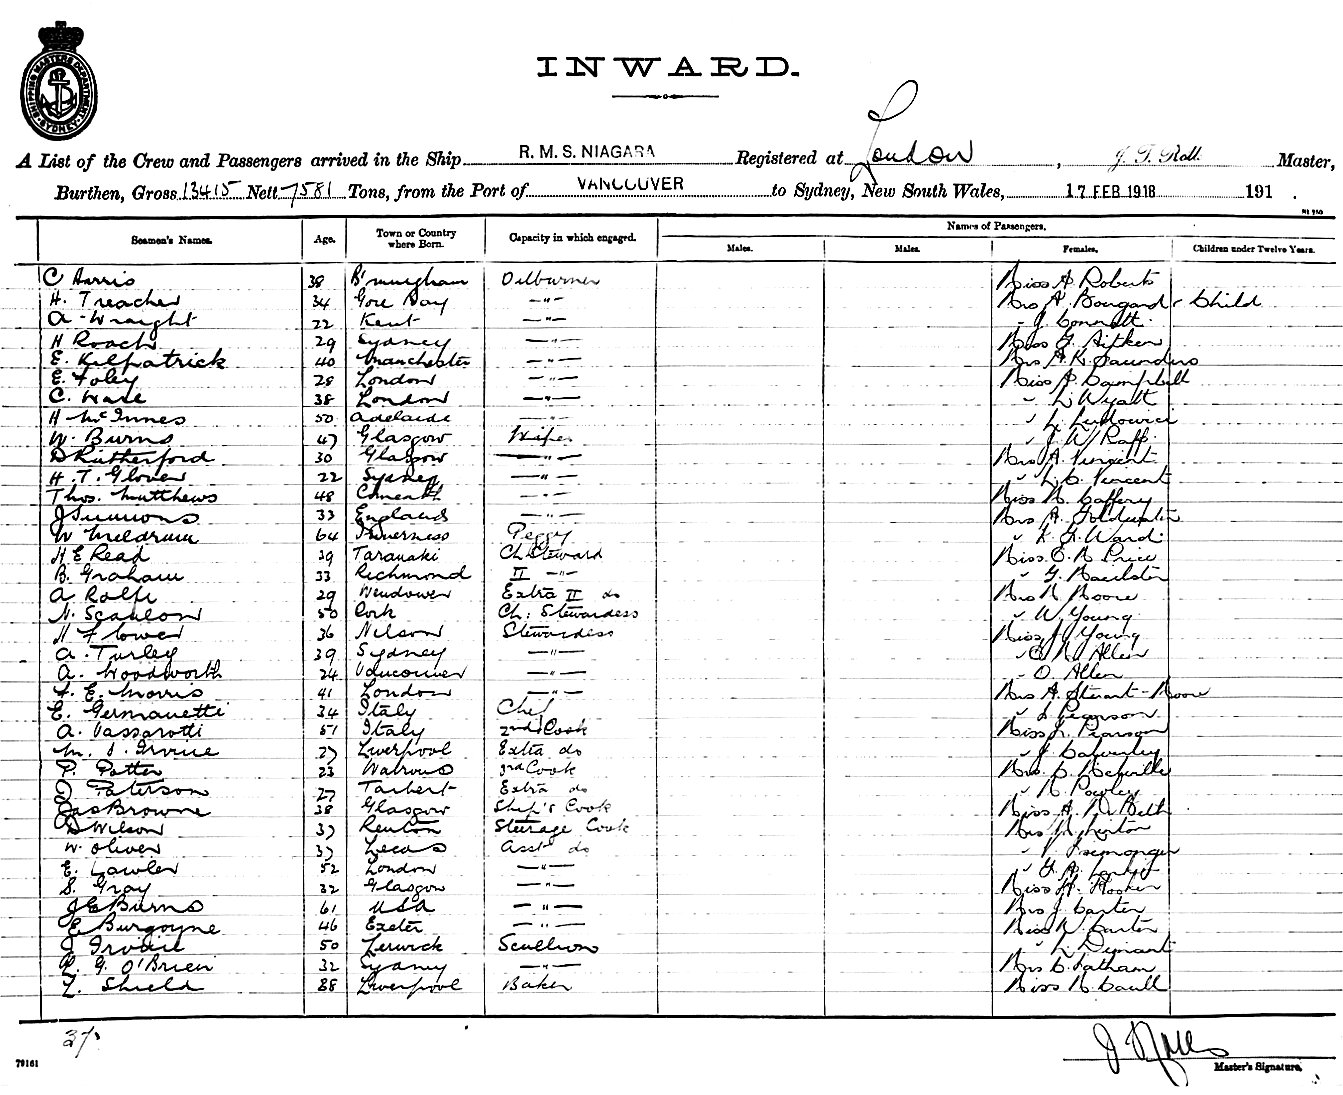 SHIPPING MASTERS DEPARTMENT SYDNEY
INWARD.
A List of the Crew and Passengers arrived in the Ship R. M. S. NIAGARA Registered at London, J. T. Rolls Master,
Burthen, Gross 13415 Nett 7581 Tons, from the Port of VANCOUVER to Sydney, New South Wales, 17 FEB 1918 191 .
Seamen's Names. Age. Town or Country where Born. Capacity in which engaged. Names of Passengers.
Males. Males. Females. Children under Twelve Years.
C Harris 38 B'mingham Oilburner Miss A Roberts
H. Treacher 34 Gore Bay —"— Mrs A. Bougard & Child
A. Wraight 22 Kent —"— " J. Connett
H Roach 29 Sydney —"— Miss G Aitken
E. Kilpatrick 40 Manchester —"— Mrs A. K. Saunders
E. Foley 28 London —"— Miss A Campbell
C. Ware 38 London —"— " L. Wyatt
H McInnes 50 Adelaide —"— " L. Ludowici
W. Burns 47 Glasgow Wiper " J. W. Raff
D Rutherford 30 Glasgow —"— Mrs A. Vincent
H. T. Glover 22 Sydney —"— " L. C. Vincent
Thos. Matthews 48 —"— Miss M. Caffery
J Simmons 33 England —"— Mrs A.
W Meldrum 64 Inverness Peggy " Ward
H E Read 39 Taranaki Ch Steward Miss E. M Price
B. Graham 33 Richmond II —"— " G.
A Rolfe 29 Wendover Extra II do Mrs Moore
N. Scanlon 50 Cork Ch. Stewardess " W Young
H Flower 36 Nelson Stewardess Miss J Young
A. Turley 39 Sydney —"— " Allen
A. Woodworth 24 Vancouver —"— " O. Allen
F. E. Morris 41 London —"— Mrs A. Stewart-Moore
E. Germanetti 34 Italy Chef " Pearson
A. Vassarotti 51 Italy 2nd Cook Miss L. Pearson
M. J. Irvine 27 Liverpool Extra do " J.
P. Potter 23 Watrous 3rd Cook Mrs Melville
J. Paterson 27 Tarbert Extra do " Powley
Jas Browne 38 Glasgow Ship's Cook Miss A. McBeth
D Wilson 37 Renton Steerage Cook Mrs
W. Oliver 37 Leeds Asst do "
E. Lawler 52 London —"— "
S. Gray 32 Glasgow —"— Miss Hooker
J E Burns 61 USA —"— Mrs J. Carter
E Burgoyne 46 Exeter —"— Miss W. Carter
J Irvine 50 Lerwick Scullion " L.
P. G. O'Brien 32 Sydney —"— Mrs C. Latham
Z. Shield 38 Liverpool Baker Miss
37
79161
Master's Signature.